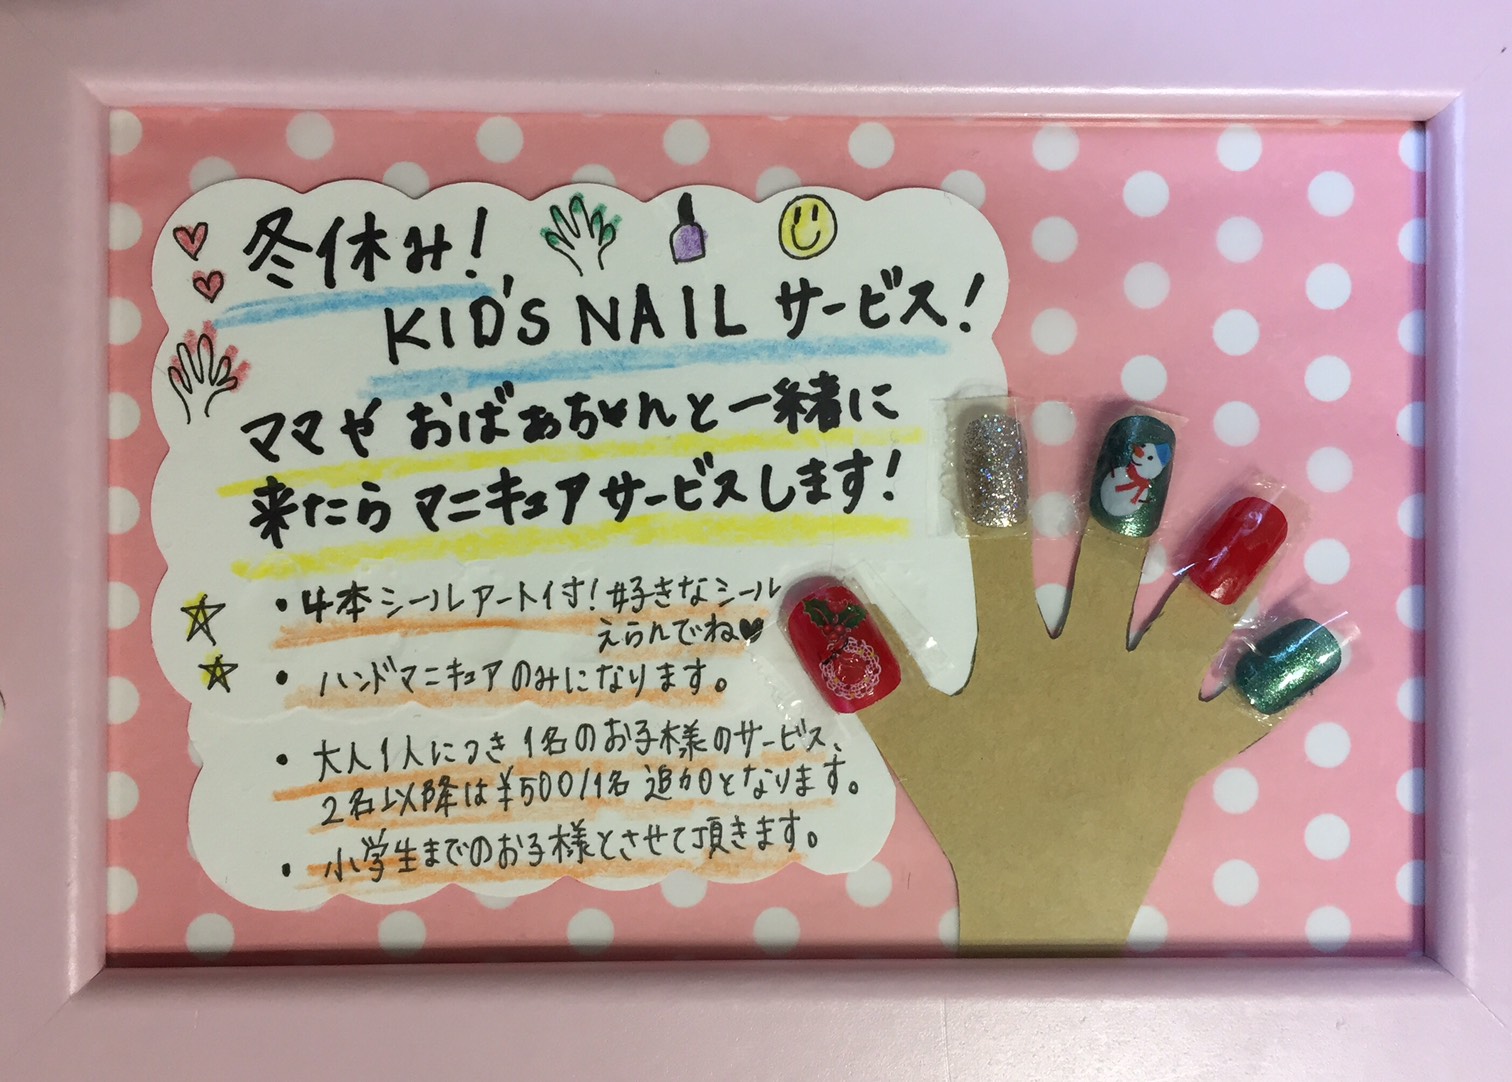 冬休み!
KID'S NAIL サービス!
ママや おばぁちゃんと一緒に
来たら マニキュアサービスします!
・4本シールアート付!好きなシール
えらんでね♥
・ハンドマニキュアのみになります。
・大人1人につき1名のお子様のサービス、
2名以降は¥500/1名 追加となります。
・小学生までのお子様とさせて頂きます。